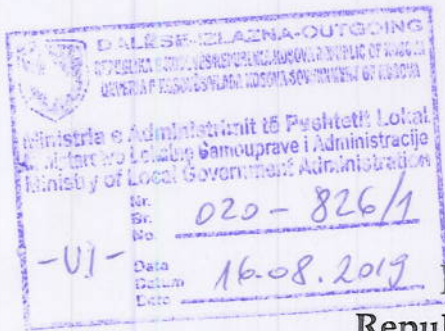 DALËSE-IZLAZNA-OUTGOING
REPUBLIKA E KOSOVËS/REPUBLIKA KOSOVA/REPUBLIC OF KOSOVA
QEVERIA E KOSOVËS/VLADA KOSOVA/GOVERNMENT OF KOSOVA
Ministria e Administrimit të Pushtetit Lokal
Ministarstvo Lokalne Samouprave i Administracije
Ministry of Local Government Administration
Nr.
Br.
No.
020 - 826/1
-UJ-
Data
Datum
Date
16.08.2019
Repu